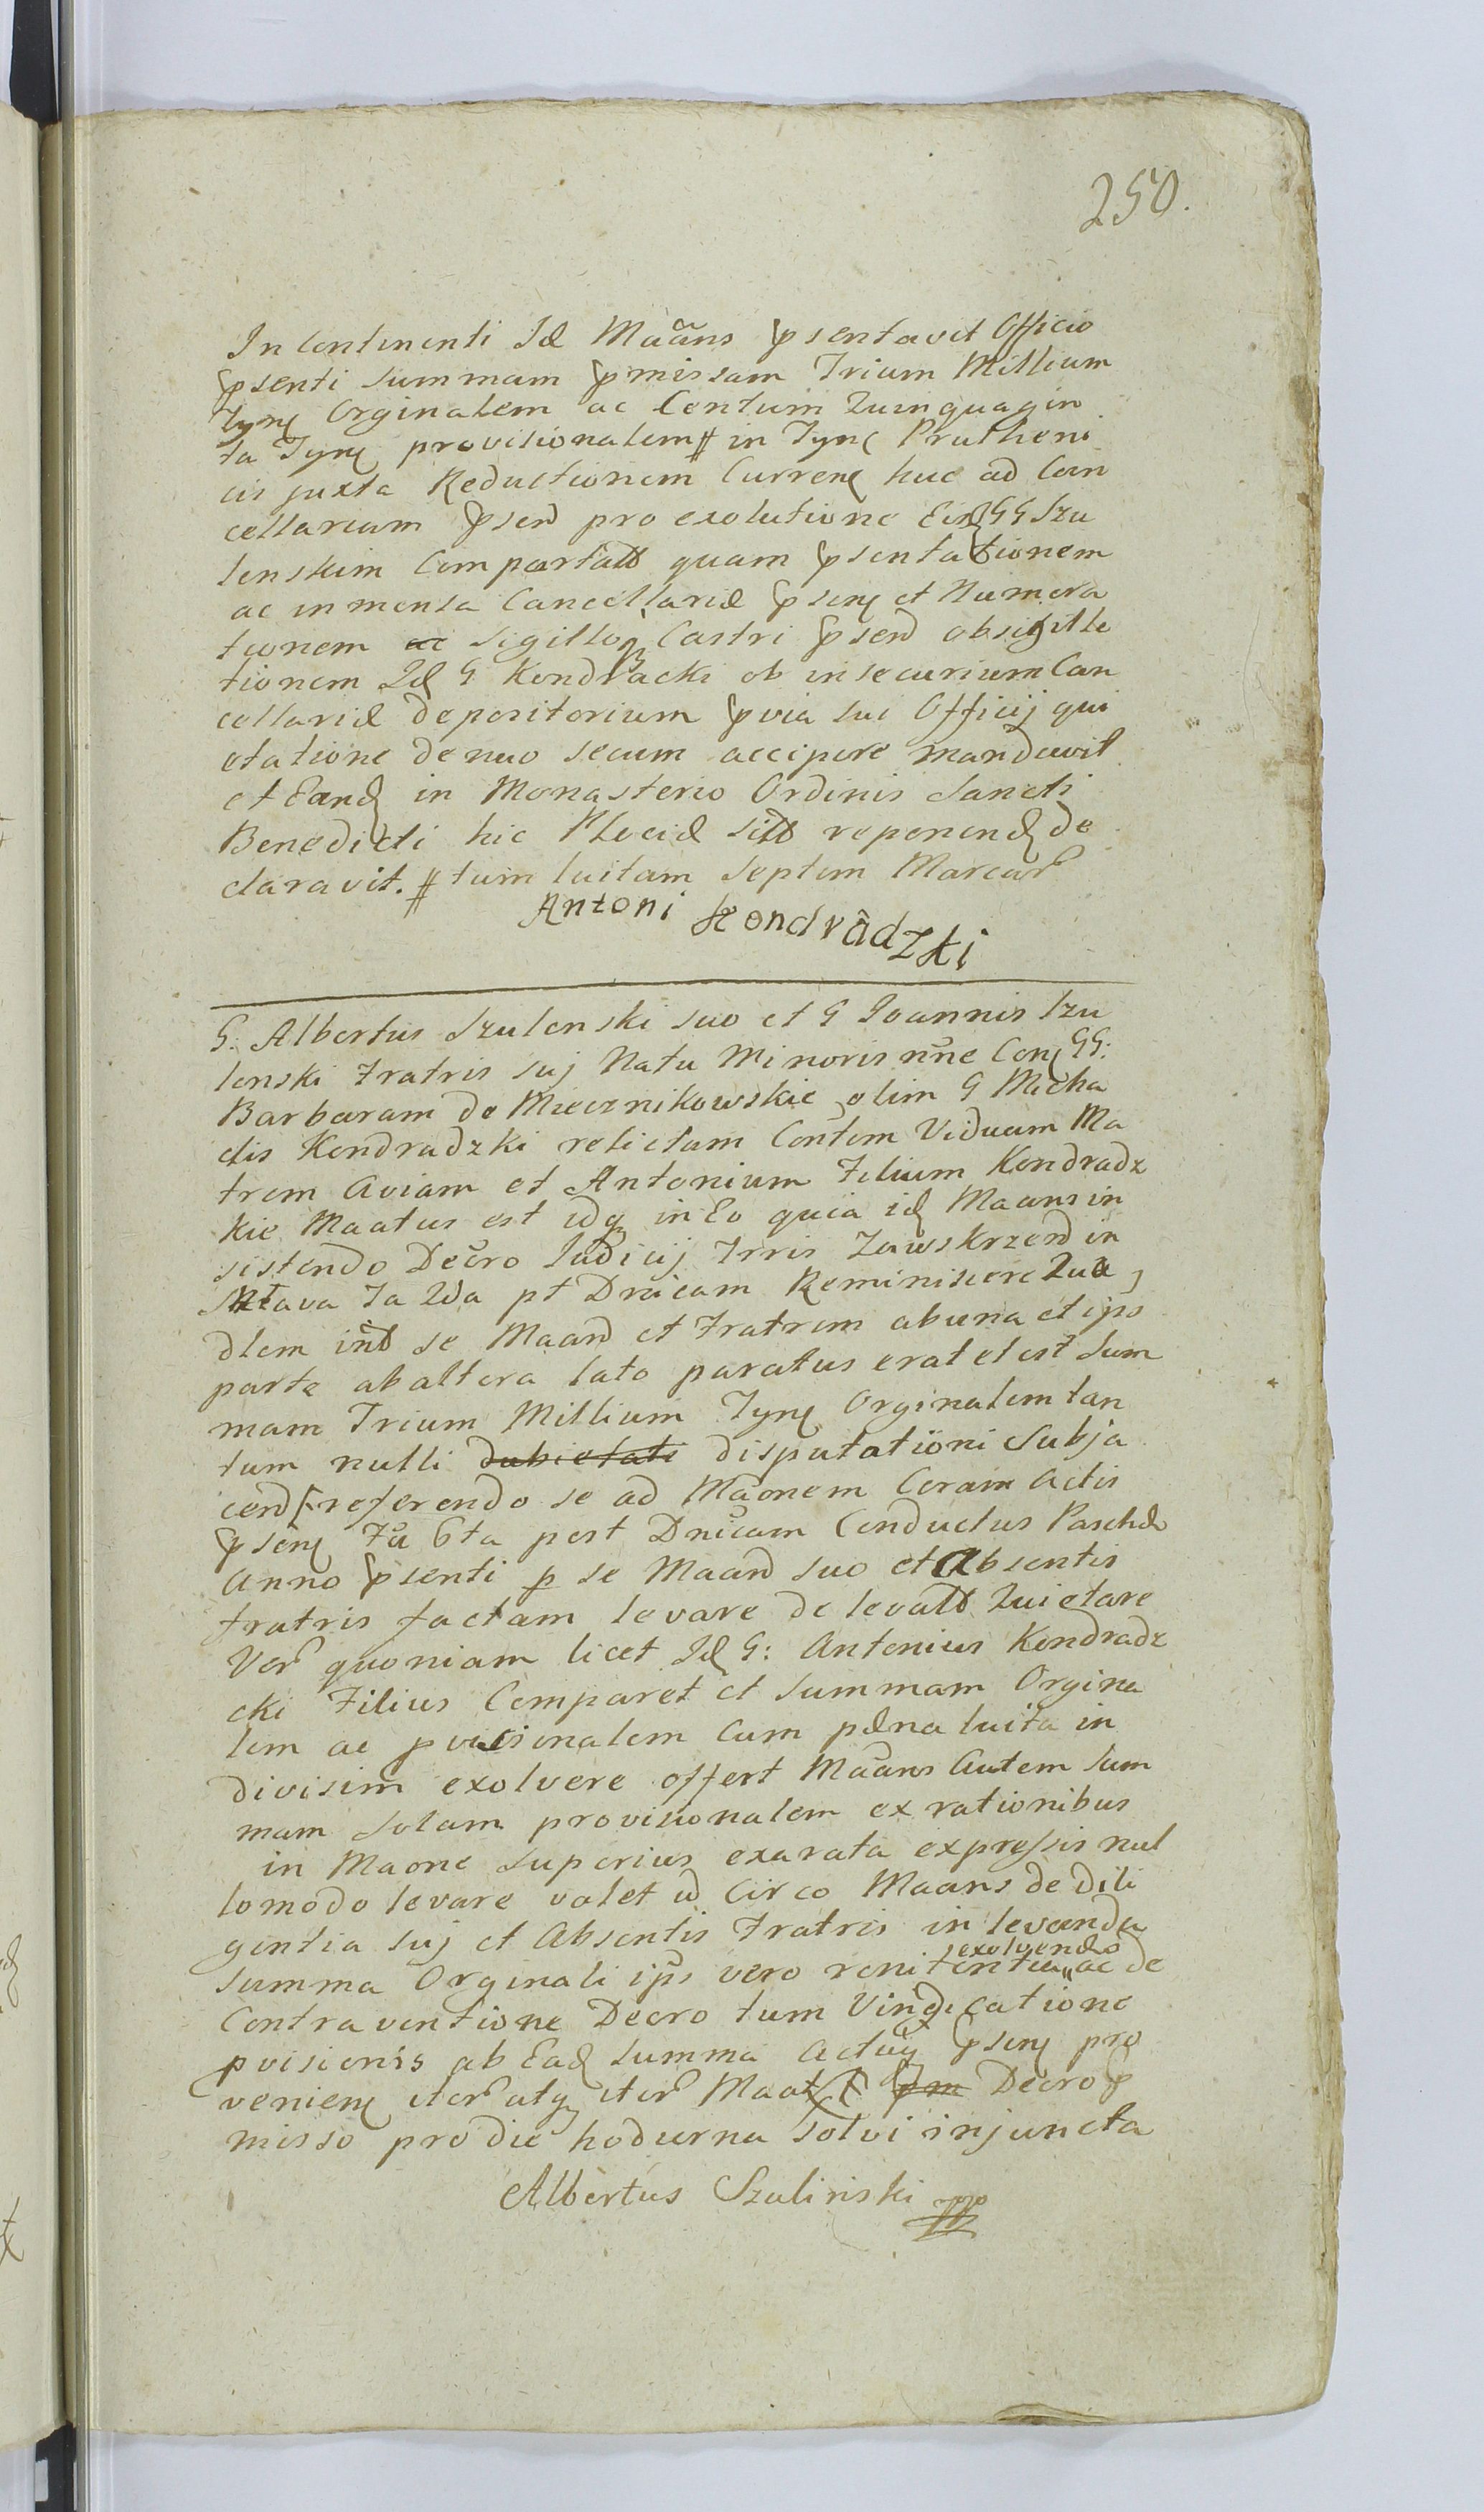 250.
In Continenti Id Maans psentavit Officio
psenti Summam pmissam Trium Millium
Tynf Orginalem ac Centum Quinquagin
ta Tynf provisionalem # in Tynf Prutheni
cis juxta Reductionem Curren huc ad Can
cellariam psen pro exolutione Eisd GG Szu
lenskim Comportatt quam psentationem
ac in mensa Cancellariæ psen et Numera
tionem ac Sigilloq Castri psen obsigilla
tionem Id G Kondracki ob insecurium Can
cellariæ depositorium pvia sui Officij qui
etatione denuo secum accipere mandavit
et Eand in Monasterio Ordinis Sancti
Benedicti hic Plociæ sitt reponend de
claravit. # tum luitam Septem Marcar
Antoni Kondradzki
G. Albertus Szulenski suo et G Joannis Szu
lenski Fratris suj Natu Minoris nne Con GG:
Barbaram de Miecznikowskie olim G Micha
elis Kondradzki relictam Contem Viduam Ma
trem Aviam et Antonium Filium Kondradz
kie Maatus est idq in Eo quia id Maans in
sistendo Decro Judicij Trris Zawskrzen in
Mława Fa 2da pt Dnicam Reminiscere Qua
dlem int se Maan et Fratrem ab una et ips
parte ab altera lato paratus erat et est Sum
mam Trium Millium Tynf Orginalem tan
tum nulli dubietati disputationi Subja
cend referendo se ad Maonem Coram Actis
psen Fa 6ta post Dnicam Conductus Paschæ
Anno psenti p se Maan suo et Absentis
fratris factam levare de levatt Quietare
Ver quoniam licet Id G: Antonius Kondradz
cki Filius Comparet et Summam Orgina
lem ac pvisionalem Cum pæna luita in
divisim exolvere offert Maans Autem Sum
mam Solam provisionalem ex rationibus
in Maone Superius exarata expressis nul
lomodo levare valet id Circo Maans de dili
gentia suj et Absentis Fratris in levanda
exolvendo
Summa Orginali ips vero renitentia ac de
Contraventione Decro tum Vindicatione
pvisionis ab Ead Summa psen pro
venien iter atq iter Maat pm Decro p
misso pro die hodierna solvi injuncta
Albertus Szulinski mp